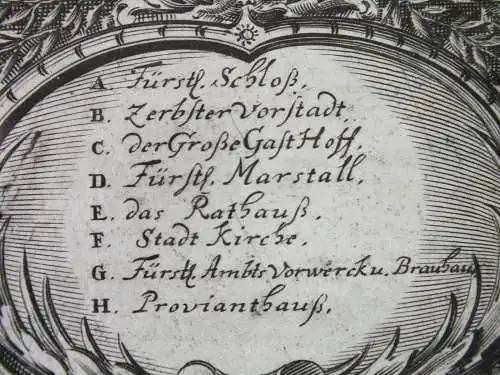 A. Fürstl. Schloß.
B. Zerbster Vorstadt
C. der Große Gast Hoff.
D. Fürstl. Marstall.
E. das Rathauß.
F. Stadt Kirche.
G. Fürstl. Ambts Vorwerck u. Brauhauß
H. Provianthauß.